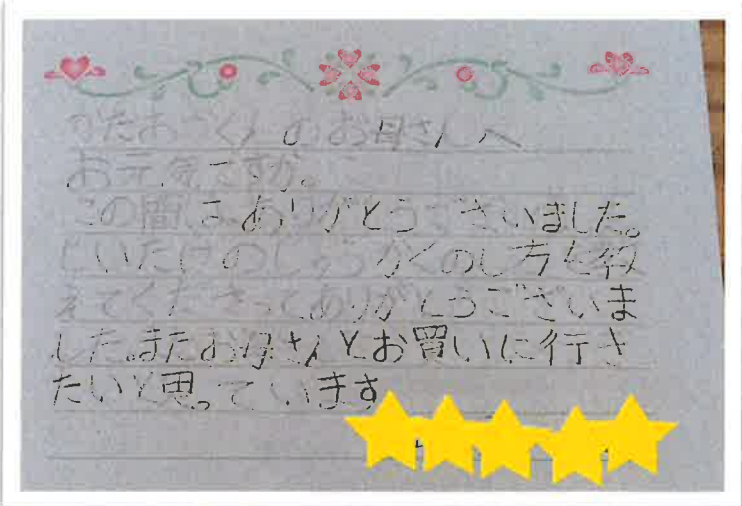 くんのお母さんへ
お元気ですか。
この間はありがとうございました。
しいたけのしゅうかくのし方を教
えてくださってありがとうございま
した。またお母さんとお買いに行き
たいと思っています